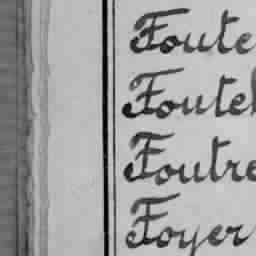 Foute
Foutel
Foutre
Foyer